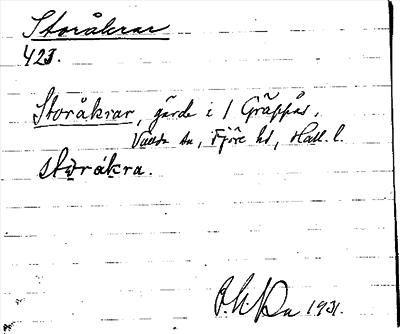 Storåkrar
423.
Storåkrar, gärde i 1 Gräppås,
Valda sn, Fjäre hd, Hall. l.
storåkra.
1931.